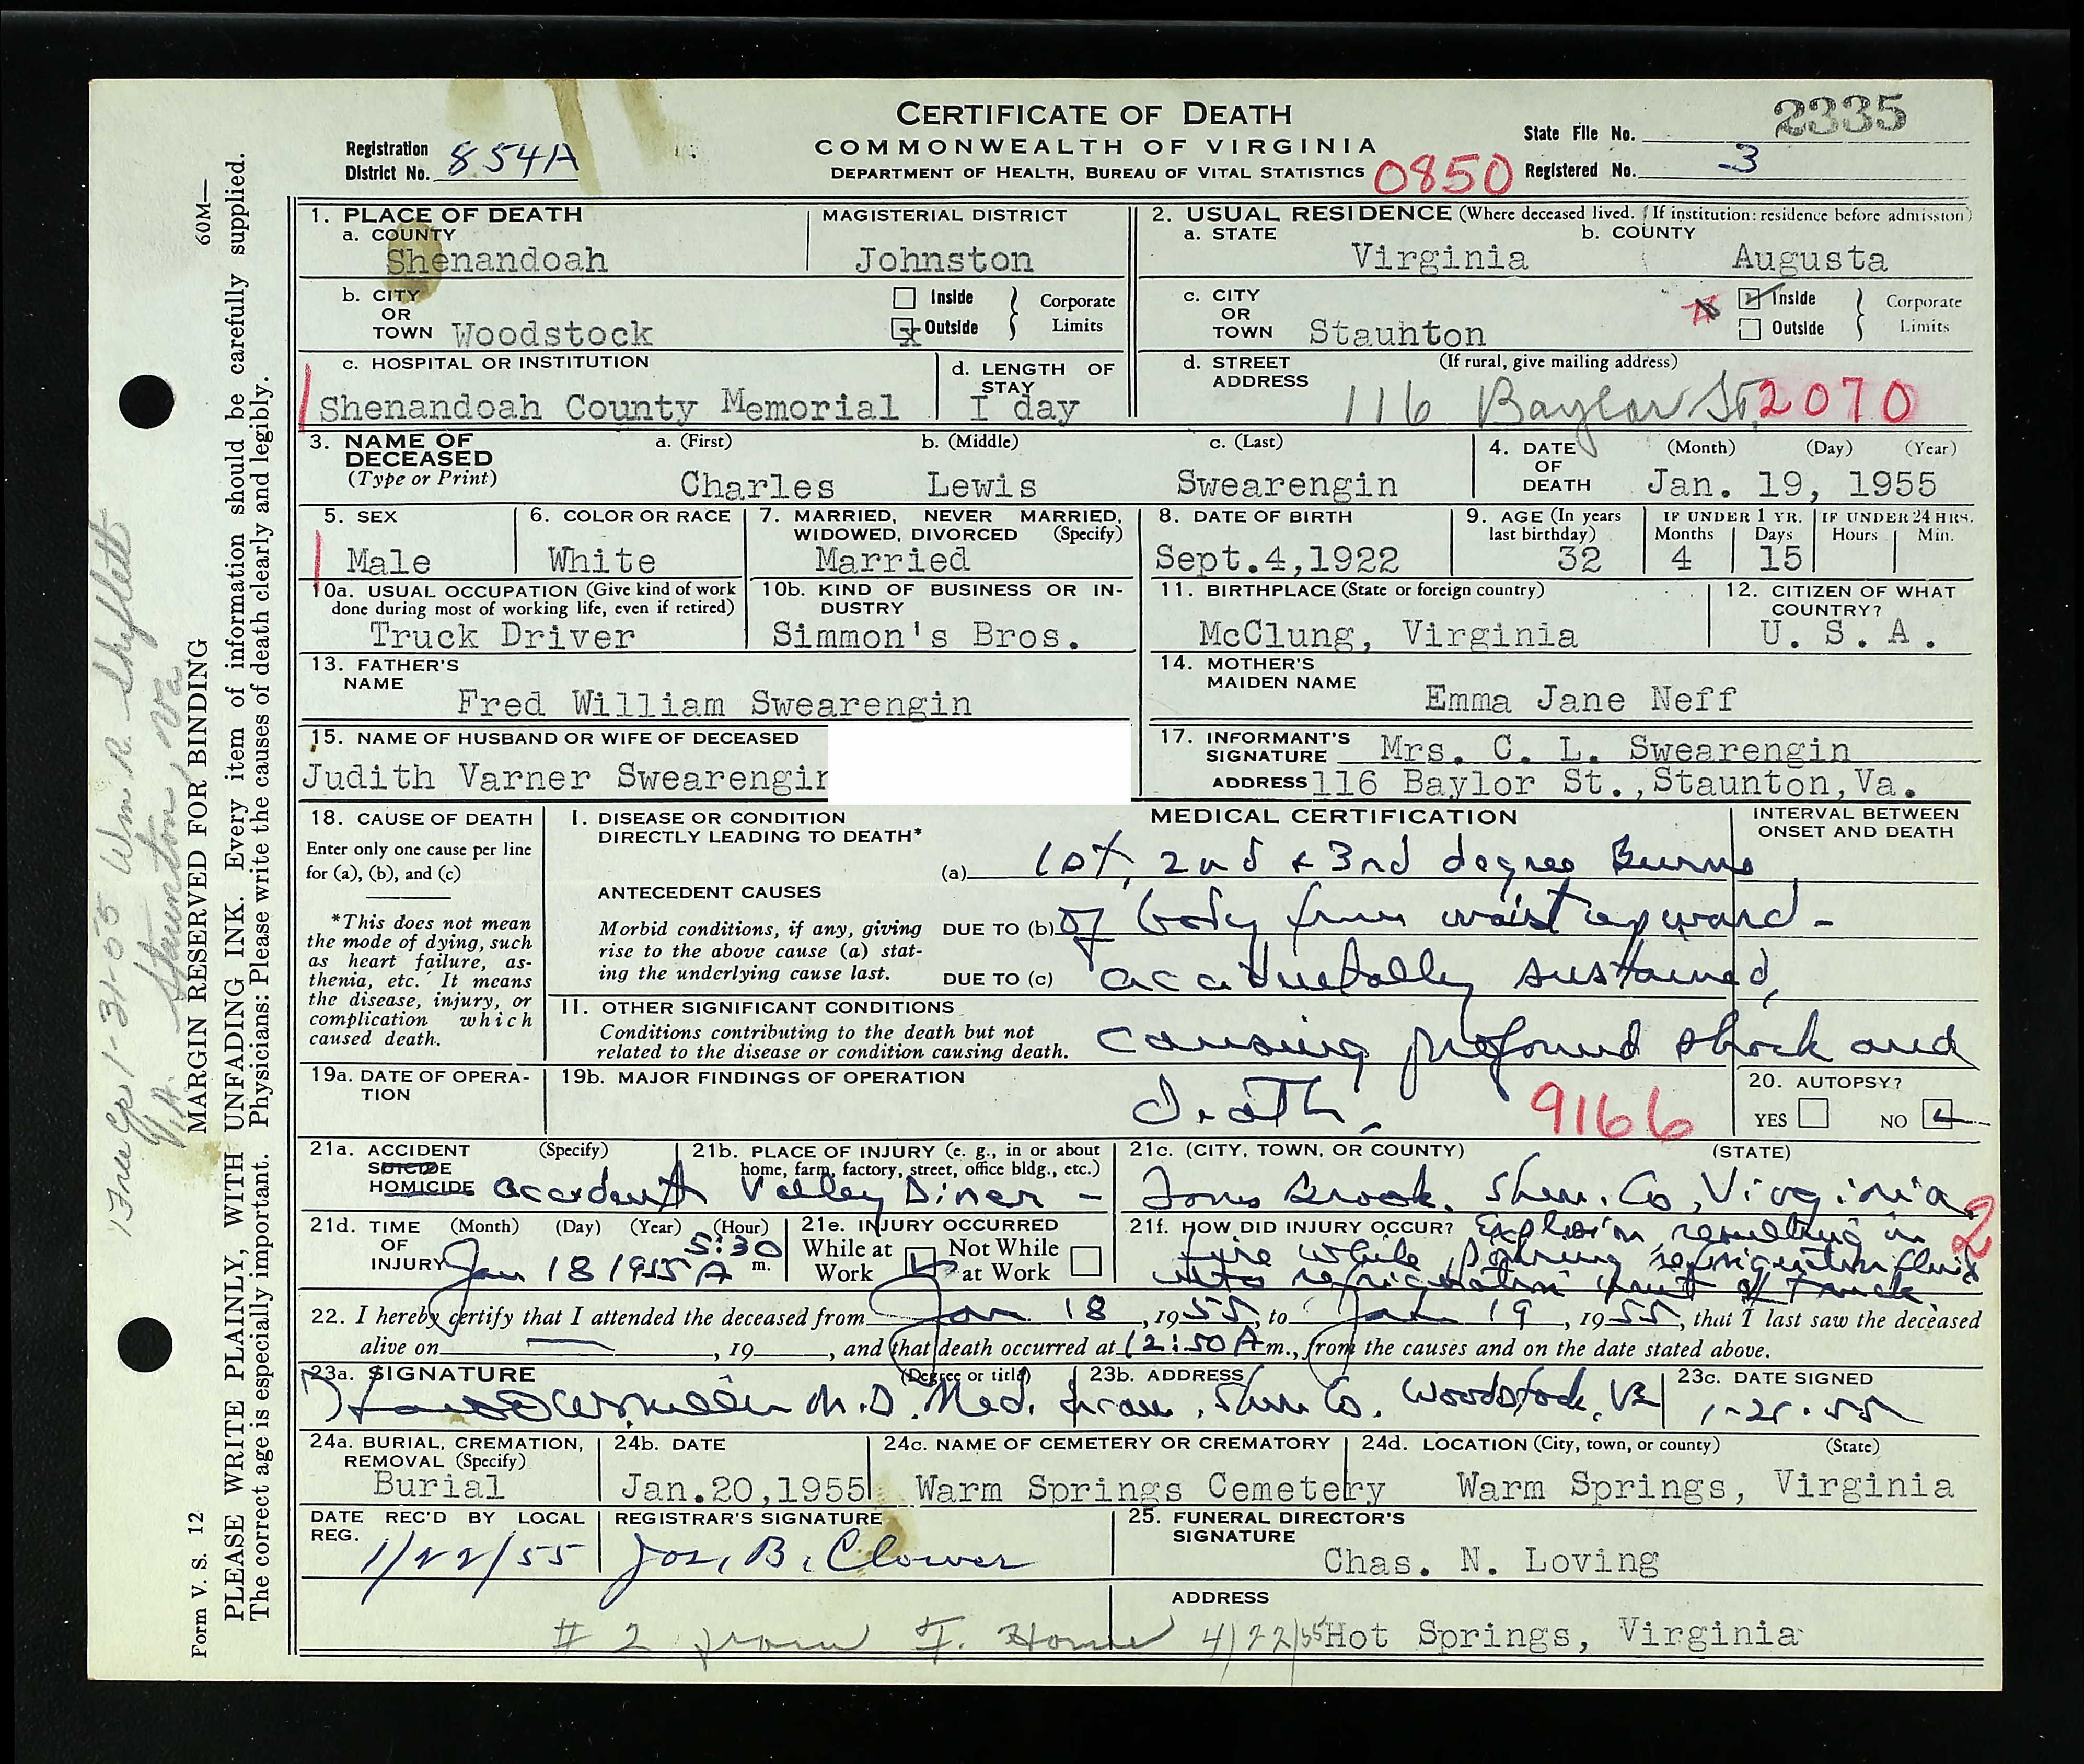 CERTIFICATE OF DEATH
COMMONWEALTH OF VIRGINIA
DEPARTMENT OF HEALTH, BUREAU OF VITAL STATISTICS
0850
Registration District No. 854A
State File No. 2335
Registered No. 3
1. PLACE OF DEATH
a. COUNTY
Shenandoah
MAGISTERIAL DISTRICT
Johnston
2. USUAL RESIDENCE (Where deceased lived. If institution: residence before admission)
a. STATE
Virginia
b. COUNTY
Augusta
b. CITY OR TOWN Woodstock
Inside
x Outside
Corporate Limits
c. CITY OR TOWN Staunton
Inside
Outside
Corporate Limits
c. HOSPITAL OR INSTITUTION
Shenandoah County Memorial
d. LENGTH OF STAY
I day
d. STREET ADDRESS
(If rural, give mailing address)
116 Baylor St. 2070
3. NAME OF DECEASED
(Type or Print)
a. (First)
b. (Middle)
c. (Last)
Charles Lewis Swearengin
4. DATE OF DEATH
(Month) (Day) (Year)
Jan. 19, 1955
5. SEX
Male
6. COLOR OR RACE
White
7. MARRIED, NEVER MARRIED, WIDOWED, DIVORCED (Specify)
Married
8. DATE OF BIRTH
Sept.4,1922
9. AGE (In years last birthday)
32
IF UNDER 1 YR.
Months Days
4 15
IF UNDER 24 HRS.
Hours Min.
10a. USUAL OCCUPATION (Give kind of work done during most of working life, even if retired)
Truck Driver
10b. KIND OF BUSINESS OR INDUSTRY
Simmon's Bros.
11. BIRTHPLACE (State or foreign country)
McClung, Virginia
12. CITIZEN OF WHAT COUNTRY?
U. S. A.
13. FATHER'S NAME
Fred William Swearengin
14. MOTHER'S MAIDEN NAME
Emma Jane Neff
15. NAME OF HUSBAND OR WIFE OF DECEASED
Judith Varner Swearengin
17. INFORMANT'S SIGNATURE Mrs. C. L. Swearengin
ADDRESS 116 Baylor St.,Staunton,Va.
18. CAUSE OF DEATH
Enter only one cause per line for (a), (b), and (c)
*This does not mean the mode of dying, such as heart failure, asthenia, etc. It means the disease, injury, or complication which caused death.
MEDICAL CERTIFICATION
INTERVAL BETWEEN ONSET AND DEATH
I. DISEASE OR CONDITION DIRECTLY LEADING TO DEATH*
(a) 1st, 2nd & 3rd degree Burns
ANTECEDENT CAUSES
Morbid conditions, if any, giving rise to the above cause (a) stating the underlying cause last.
DUE TO (b) of body from waist upward -
DUE TO (c) accidentally sustained,
II. OTHER SIGNIFICANT CONDITIONS
Conditions contributing to the death but not related to the disease or condition causing death.
causing profound shock and
death.
9166
19a. DATE OF OPERATION
19b. MAJOR FINDINGS OF OPERATION
20. AUTOPSY?
YES NO
21a. ACCIDENT SUICIDE HOMICIDE (Specify)
accident
21b. PLACE OF INJURY (e. g., in or about home, farm, factory, street, office bldg., etc.)
Valley Diner -
21c. (CITY, TOWN, OR COUNTY) (STATE)
Toms Brook. Shen. Co, Virginia
2
21d. TIME OF INJURY
(Month) (Day) (Year) (Hour)
Jan 18 1955 5:30 A m.
21e. INJURY OCCURRED
While at Work
Not While at Work
21f. HOW DID INJURY OCCUR? Explosion resulting in
fire while pouring refrigeration fluid
into refrigeration unit of Truck.
22. I hereby certify that I attended the deceased from Jan 18, 1955, to Jan 19, 1955, that I last saw the deceased
alive on —, 19 , and that death occurred at 12:50 A m., from the causes and on the date stated above.
23a. SIGNATURE
(Degree or title)
M.D. Med. Exam. Shen Co.
23b. ADDRESS
Woodstock, Va
23c. DATE SIGNED
24a. BURIAL, CREMATION, REMOVAL (Specify)
Burial
24b. DATE
Jan.20,1955
24c. NAME OF CEMETERY OR CREMATORY
Warm Springs Cemetery
24d. LOCATION (City, town, or county) (State)
Warm Springs, Virginia
DATE REC'D BY LOCAL REG.
1/22/55
REGISTRAR'S SIGNATURE
Jos. B. Clower
25. FUNERAL DIRECTOR'S SIGNATURE
Chas. N. Loving
ADDRESS
Hot Springs, Virginia
# 2 from F. Home 4/22/55
Form V. S. 12
MARGIN RESERVED FOR BINDING
60M—
PLEASE WRITE PLAINLY, WITH UNFADING INK. Every item of information should be carefully supplied.
The correct age is especially important. Physicians: Please write the causes of death clearly and legibly.
1 Free Cp 1-31-55 Wm R. Shiflett
V.A. Staunton, Va